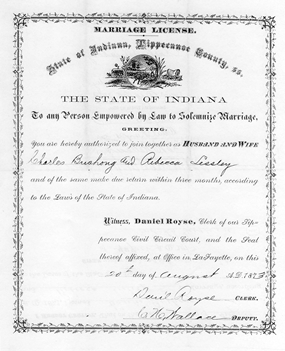 MARRIAGE LICENSE.
State of Indiana, Tippecanoe County, ss.
THE STATE OF INDIANA
To any Person Empowered by Law to Solemnize Marriage,
GREETING.
You are hereby authorized to join together as HUSBAND AND WIFE
Charles Bushong and Rebecca Lessley
and of the same make due return within three months, according
to the Laws of the State of Indiana.
Witness, Daniel Royse, Clerk of our Tip-
pecanoe Civil Circuit Court, and the Seal
thereof affixed, at Office in LaFayette, on this
20th day of August A.D. 1873
Danl Royse CLERK.
Wallace DEPUTY.